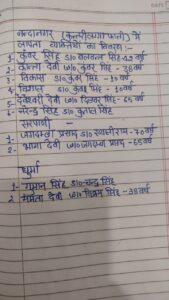 नन्दानगर (कुन्तरीलगाफाली) में
लापता व्यक्तियों का विवरण:-
1- कुंवर सिंह S/O बलवन्त सिंह-42 वर्ष
2- कान्ता देवी W/O कुंवर सिंह-38 वर्ष
3- विकास S/O कुंवर सिंह-10 वर्ष
4- विशाल S/O कुंवर सिंह-10 वर्ष
5- देवेश्वरी देवी W/O दिलबर सिंह-65 वर्ष
6- नरेन्द्र सिंह S/O कुताल सिंह
सरपाणी -
1- जगदम्बा प्रसाद S/O ख्याली राम-70 वर्ष
2- भागा देवी W/O जगदम्बा प्रसाद-65 वर्ष
धुर्मा
1- गुमान सिंह S/O चन्द्र सिंह
2- ममता देवी W/O विक्रम सिंह-38 वर्ष